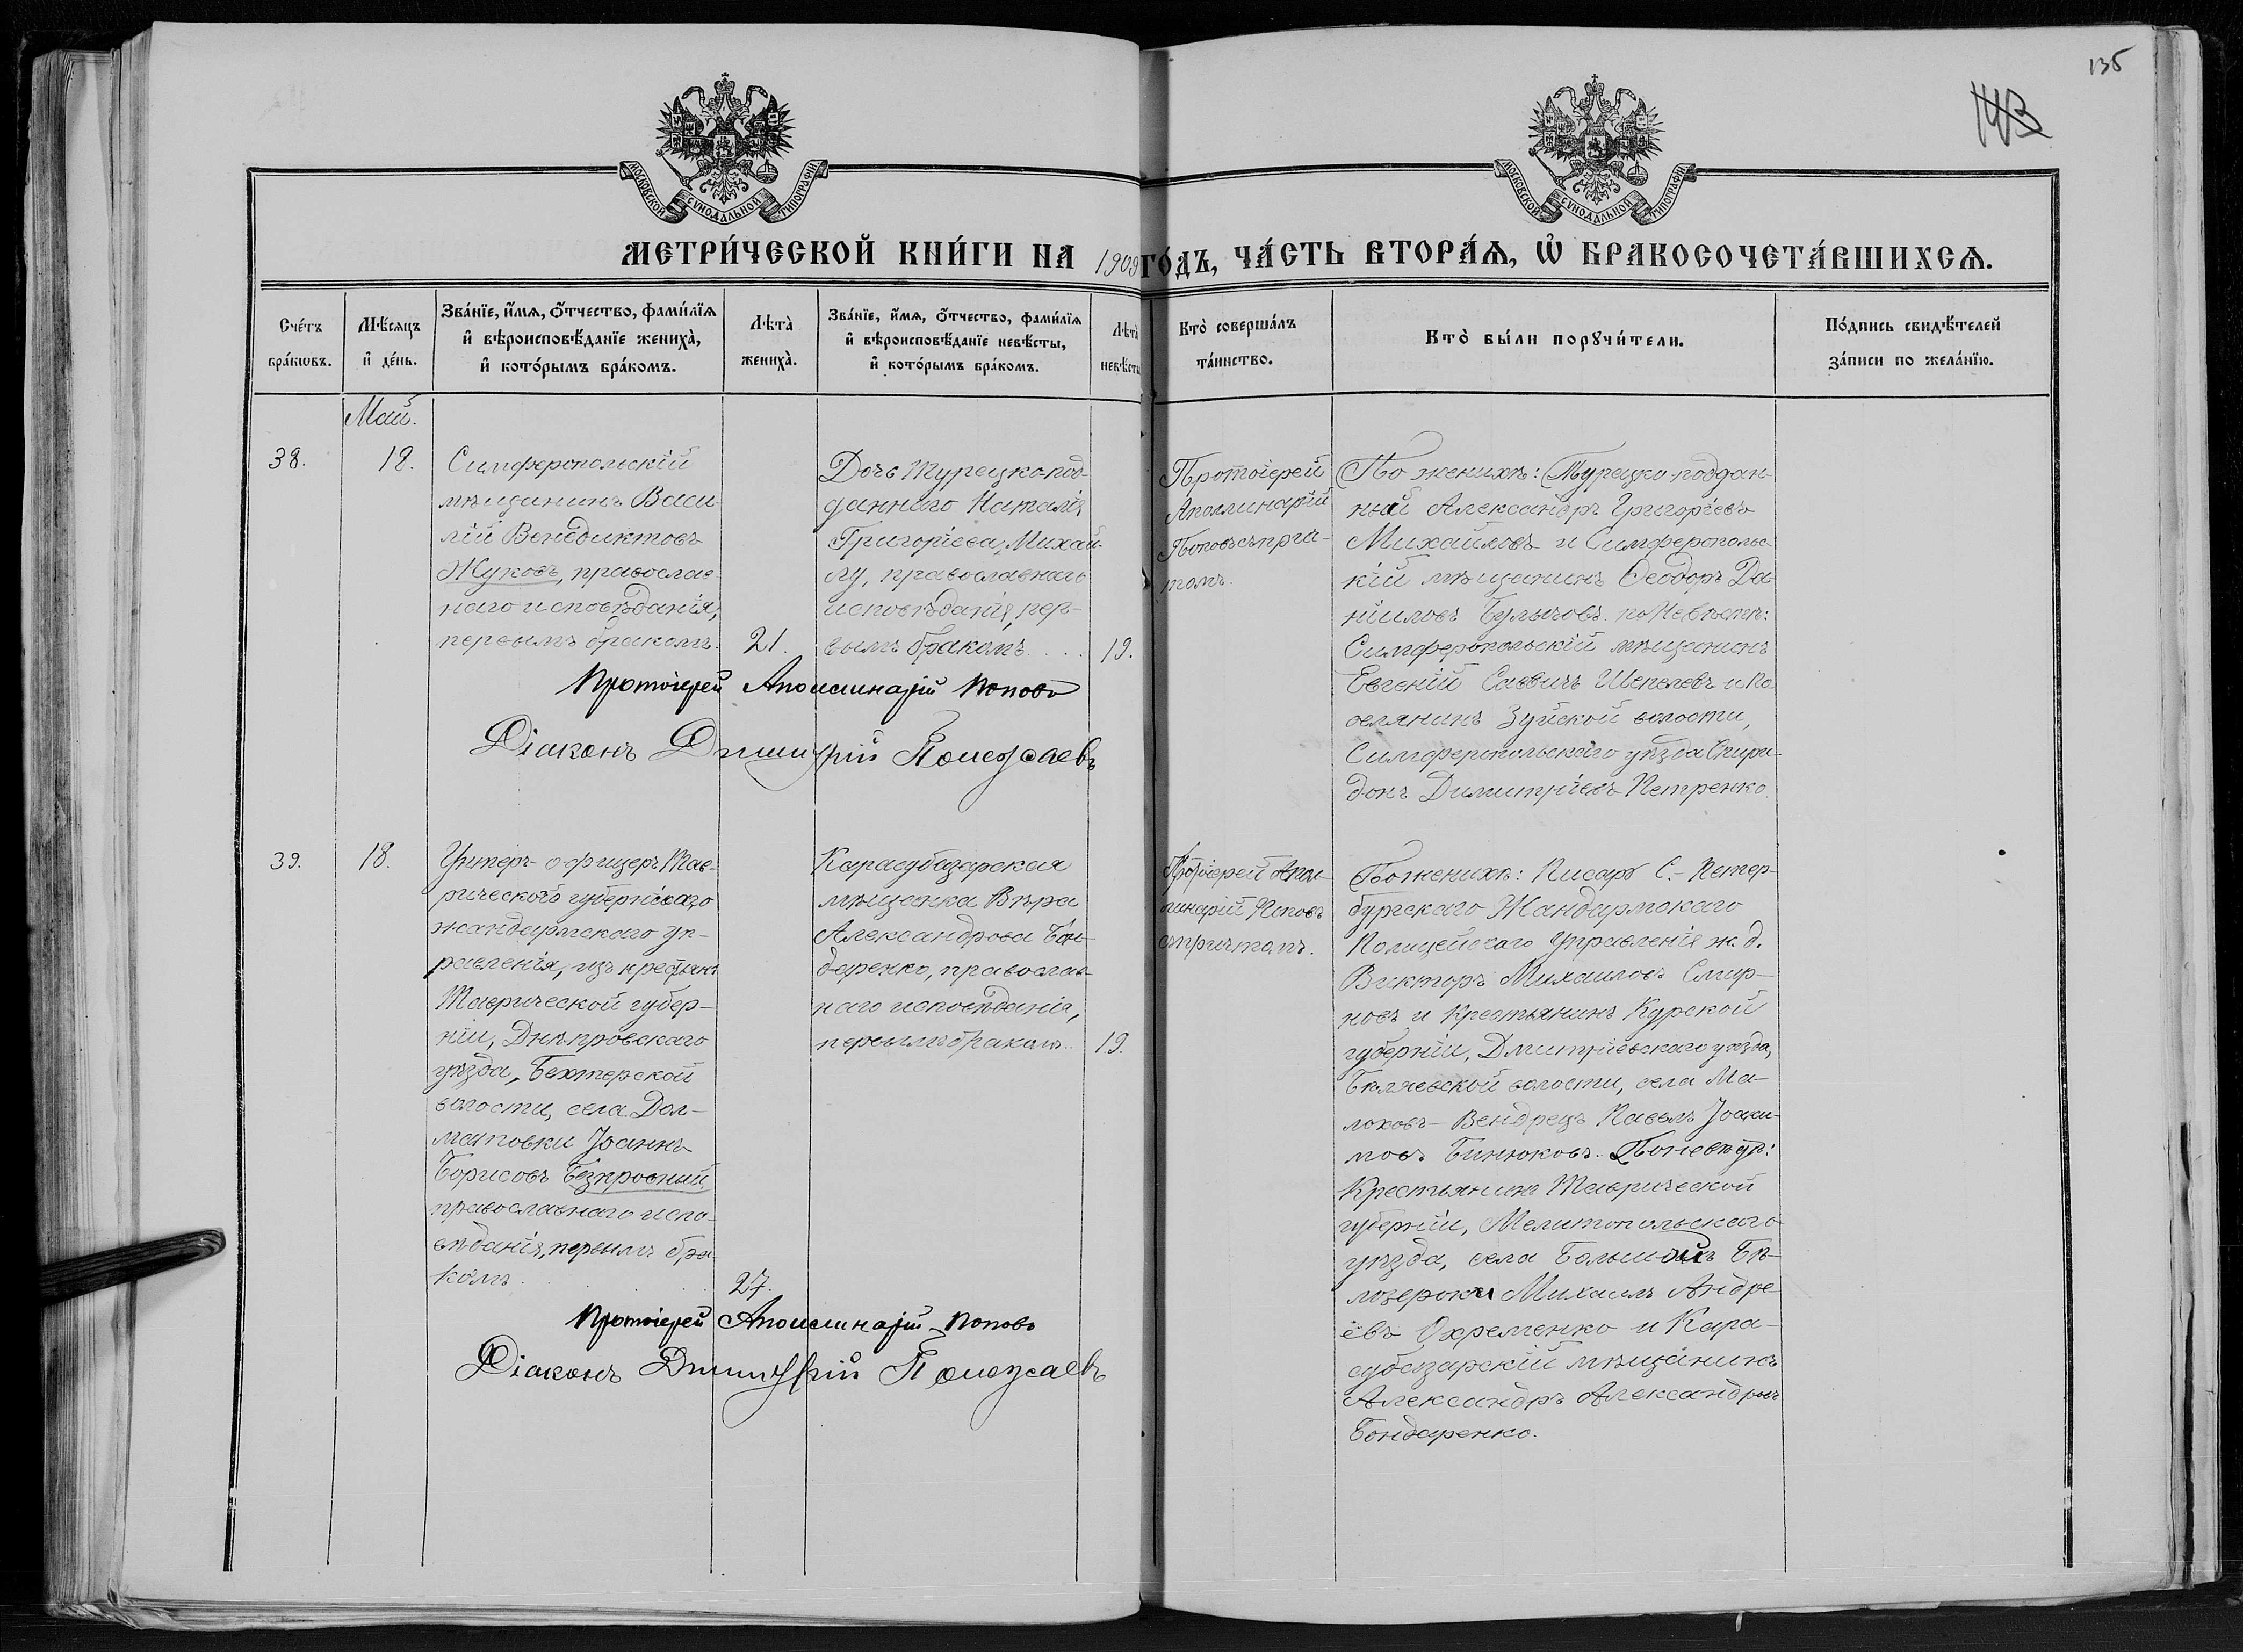 135
143
МОСКОВСКОЙ СѴНОДАЛЬНОЙ ТИПОГРАФІИ
МОСКОВСКОЙ СѴНОДАЛЬНОЙ ТИПОГРАФІИ
МЕТРИ́ЧЕСКОЙ КНИ́ГИ НА 1909 ГО́ДЪ, ЧА́СТЬ ВТОРА́Ѧ, Ѡ҆ БРАКОСОЧЕТА́ВШИХСѦ.
Сче́тъ
бра́кѡвъ.
Мѣ́сѧцъ
и҆ де́нь.
Зва́нїе, и҆́мѧ, ѻ҆́тчество, фами́лїѧ
и҆ вѣроисповѣ́данїе жениха̀,
и҆ кото́рымъ бра́комъ.
Лѣ́та̀
жениха̀.
Зва́нїе, и҆́мѧ, ѻ҆́тчество, фами́лїѧ
и҆ вѣроисповѣ́данїе невѣ́сты,
и҆ кото́рымъ бра́комъ.
Лѣ́та̀
невѣ́сты
Кто̀ соверша́лъ
та́инство.
Кто̀ бы́ли порꙋчи́тели.
По́дпись свидѣ́телей
за́писи по жела́нїю.
Май.
38.
18.
Симферопольскій
мѣщанинъ Васи
лій Венедиктовъ
Жуковъ, православ
наго исповѣданія,
первымъ бракомъ.
21.
Дочь Турецко-под-
даннаго Наталія
Григоріева Михай-
лу, православнаго
исповѣданія, пер-
вымъ бракомъ
19.
Протоіерей
Аполлинарій
Поповъ съ прич-
томъ.
По женихѣ: Турецко-поддан-
ный Александръ Григоріевъ
Михайловъ и Симферопольс-
кій мѣщанинъ Ѳеодоръ Да-
ніиловъ Булычовъ. по Невѣстѣ:
Симферопольскій мѣщанинъ
Евгеній Саввичъ Шепелевъ и по
селянинъ Зуйской волости,
Симферопольскаго уѣзда Спири-
донъ Димитріевъ Петренко
Протоіерей Аполлинарій Поповъ
Діаконъ Димитрій Полежаевъ
39.
18.
Унтеръ-офицеръ Тав-
рическаго губернскаго
жандармскаго уп-
равленія, изъ крестьянъ
Таврической губер-
ніи, Днѣпровскаго
уѣзда, Бехтерской
волости, села Дол-
матовки Іоаннъ
Борисовъ Безкровный,
православнаго испо-
вѣданія, первымъ бра-
комъ
27.
Карасубазарская
мѣщанка Вѣра
Александрова Бон-
даренко, православ-
наго исповѣданія,
первымъ бракомъ.
19.
Протоіерей Апол-
линарій Поповъ
съ причтомъ.
По женихѣ: Писарь С.-Петер-
бургскаго Жандармскаго
Полицейскаго Управленія ж. д.
Викторъ Михаиловъ Смир-
новъ и Крестьянинъ Курской
губерніи, Дмитріевскаго уѣзда,
Бѣляевской волости, села Ма-
лоховъ-Вендрецъ Павелъ Іоаки-
мовъ Бинюковъ. По невѣстѣ:
Крестьянинъ Таврической
губерніи, Мелитопольскаго
уѣзда, села Большой Бѣ-
лозерки Михаилъ Андре
евъ Охременко и Кара-
субазарскій мѣщанинъ
Александръ Александровъ
Бондаренко.
Протоіерей Аполлинарій Поповъ
Діаконъ Димитрій Полежаевъ